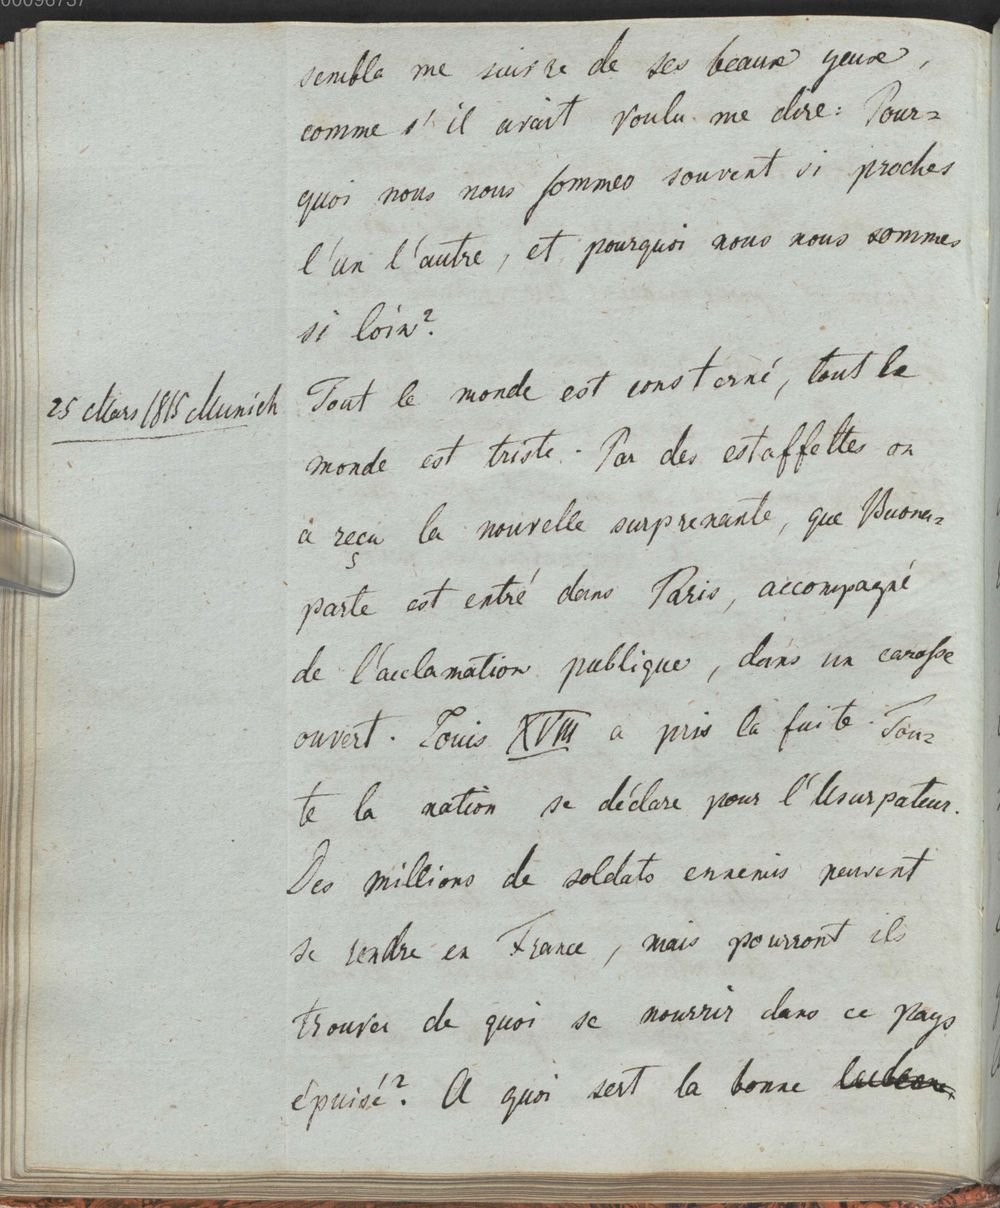 00096737
sembla me suivre de ses beaux yeux,
comme s'il avait voulu me dire: Pour=
quoi nous nous sommes souvent si proches
l'un l'autre, et pourquoi nous nous sommes
si loin?
25 Mars 1815 Munich
Tout le monde est consterné, tout le
monde est triste. Par des estaffettes on
a reçu la nouvelle surprenante, que Buona=
parte est entré dans Paris, accompagné
de l'acclamation publique, dans un carosse
ouvert. Louis XVIII a pris la fuite. Tou=
te la nation se déclare pour l'Usurpateur.
Des millions de soldats ennemis peuvent
se rendre en France, mais pourront ils
trouver de quoi se nourrir dans ce pays
épuisé? A quoi sert la bonne